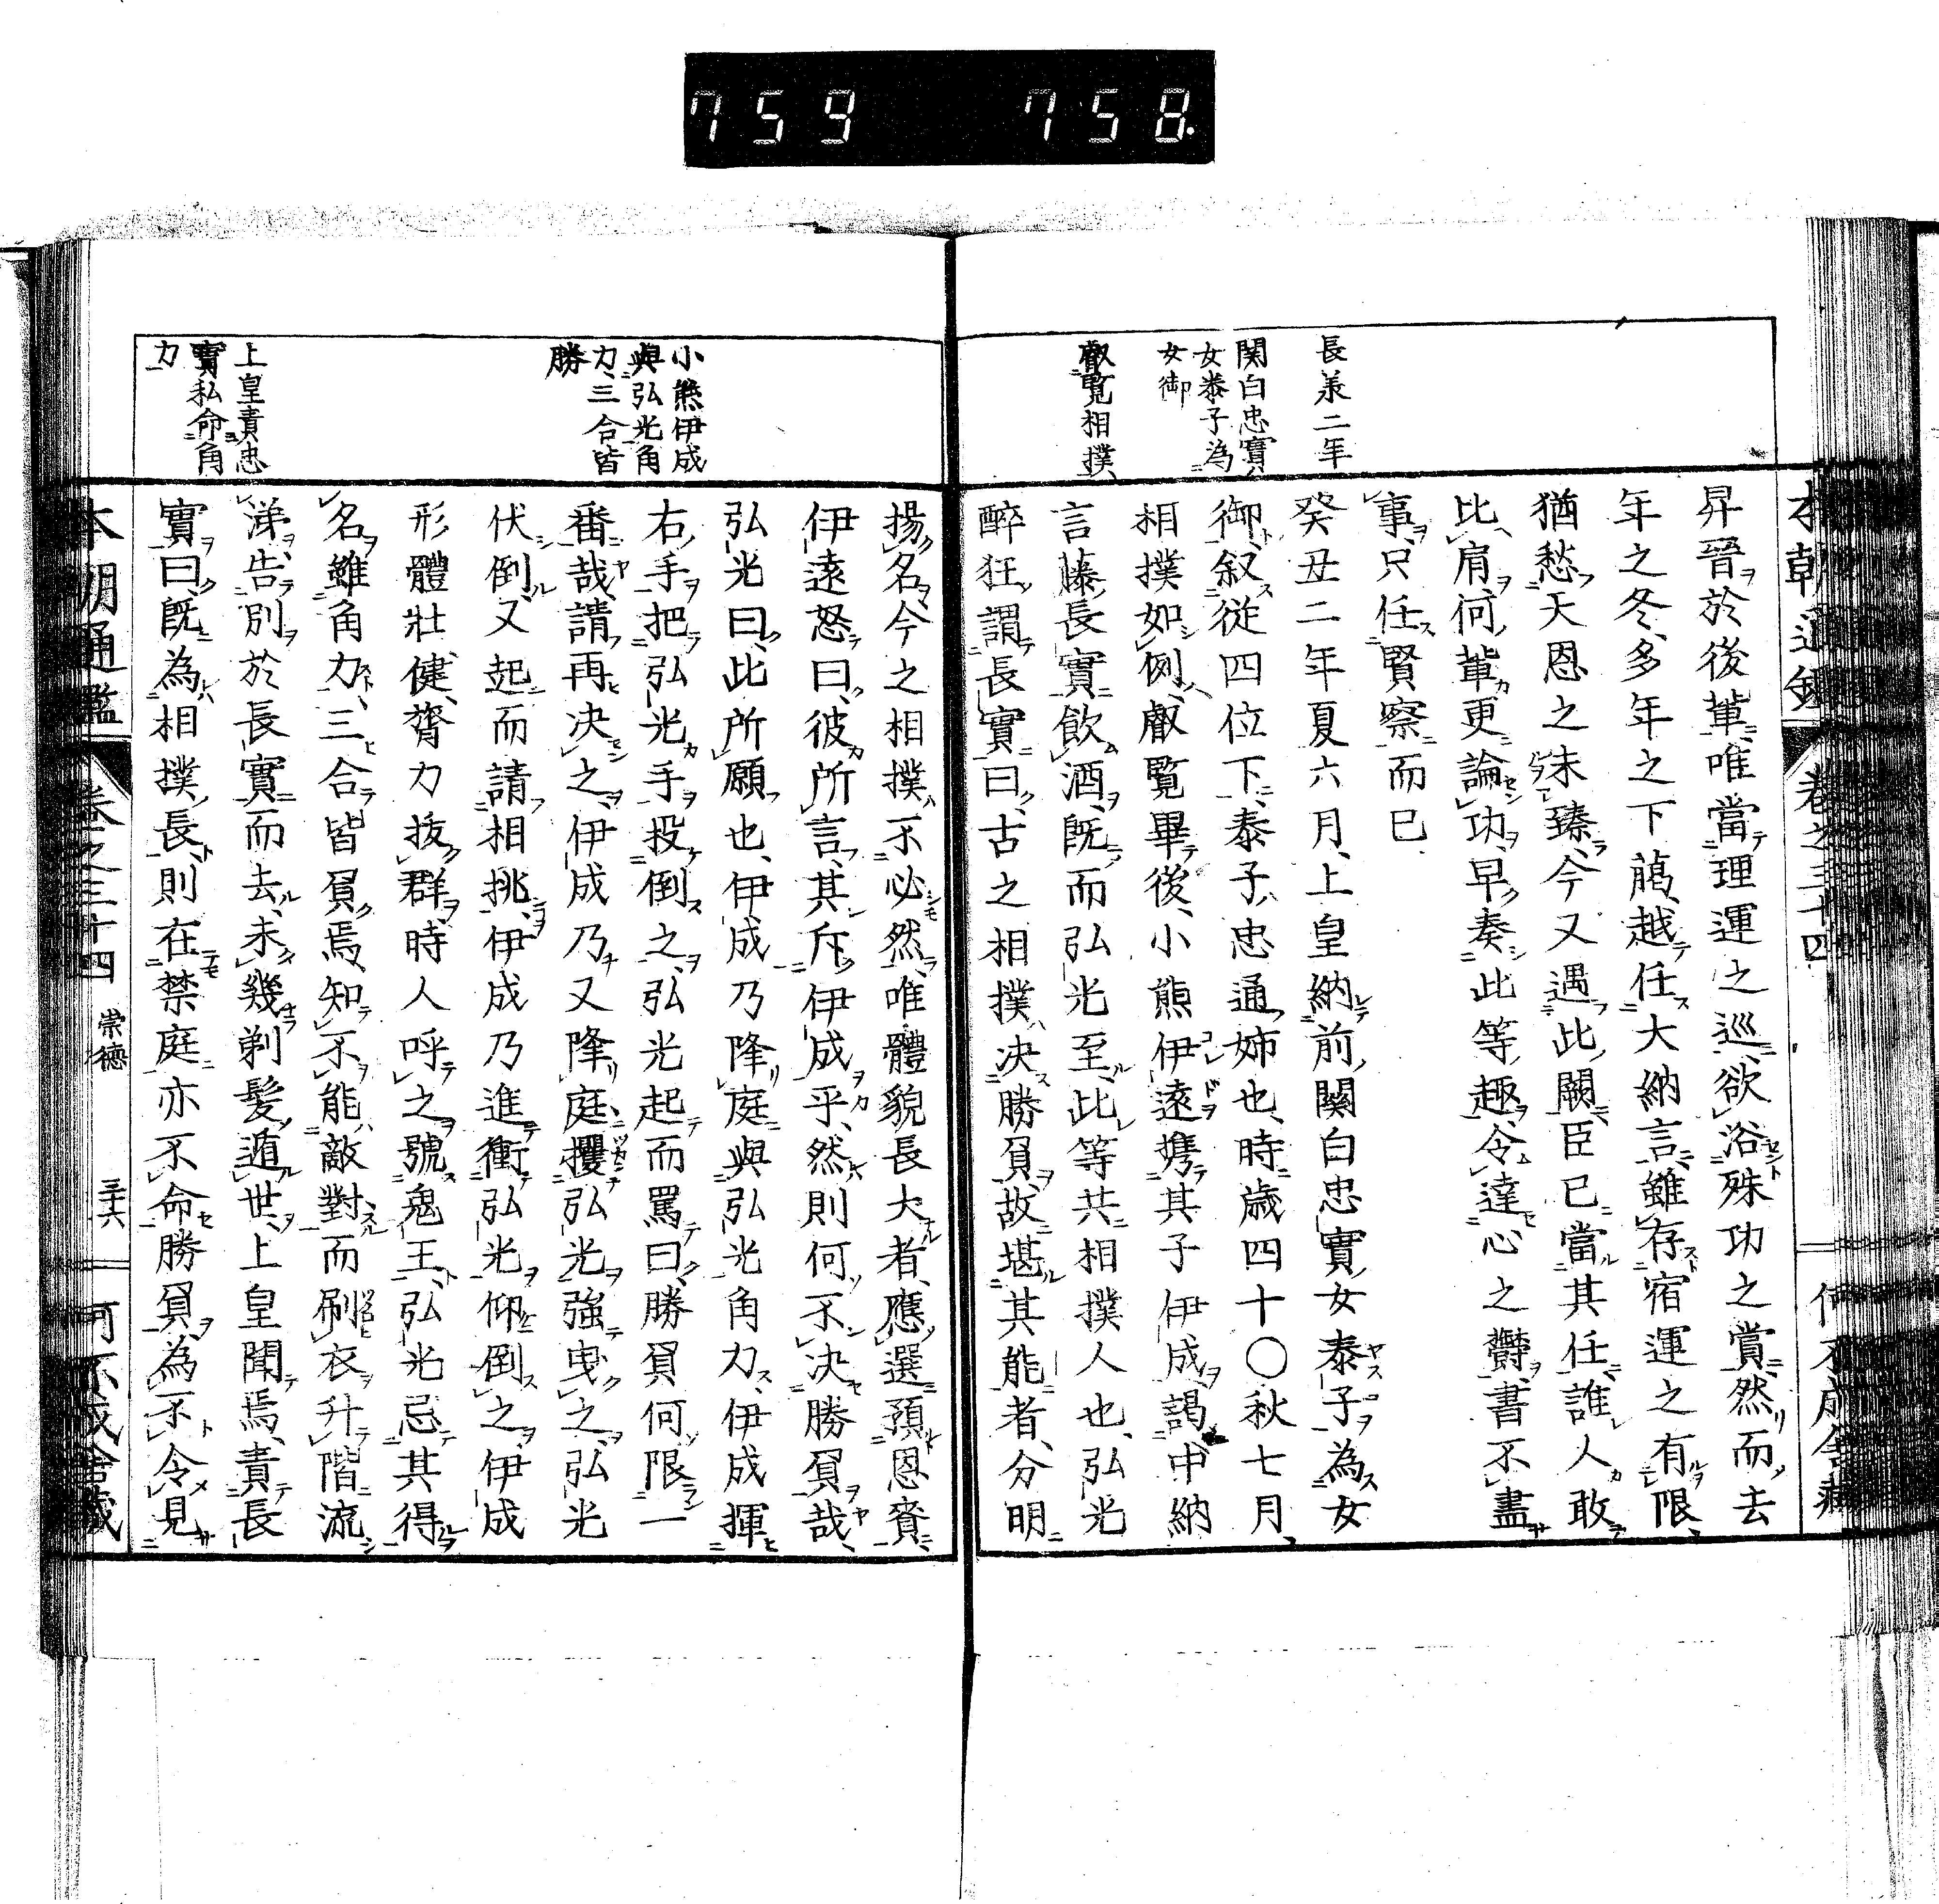 759 758
本朝通鑑 卷之三十四
長承二年
関白忠實
女泰子為
女御
叡覧相撲
昇晉於後輩唯當理運之巡欲浴殊功之賞然而去
年之冬多年之下﨟越任大納言雖存宿運之有限
猶愁天恩之未臻今又遇此闕臣已當其任誰人敢
比肩何輩更論功早奏此等趣令達心之欝書不盡
事只任賢察而已
癸丑二年夏六月上皇納前關白忠實女泰子為女
御叙従四位下泰子忠通姉也時歳四十〇秋七月
相撲如例叡覧畢後小熊伊遠携其子伊成謁中納
言藤長實飲酒既而弘光至此等共相撲人也弘光
醉狂謂長實曰古之相撲决勝負故堪其能者分明
小熊伊成
與弘光角
力三合皆
勝
上皇責忠
實私命角
力
揚名今之相撲不必然唯體貌長大者應選預恩賚
伊遠怒曰彼所言其斥伊成乎然則何不决勝負哉
弘光曰此所願也伊成乃降庭與弘光角力伊成揮
右手把弘光手投倒之弘光起而罵曰勝負何限一
番哉請再决之伊成乃又降庭攫弘光強曳之弘光
伏倒又起而請相挑伊成乃進衝弘光仰倒之伊成
形體壯健膂力抜群時人呼之號鬼王弘光忌其得
名雖角力三合皆負焉知不能敵對而刷衣升階流
涕告別於長實而去未幾剃髪遁世上皇聞焉責長
實曰既為相撲長則在禁庭亦不命勝負為不令見
本朝通鑑 卷之三十四 崇德 三十六